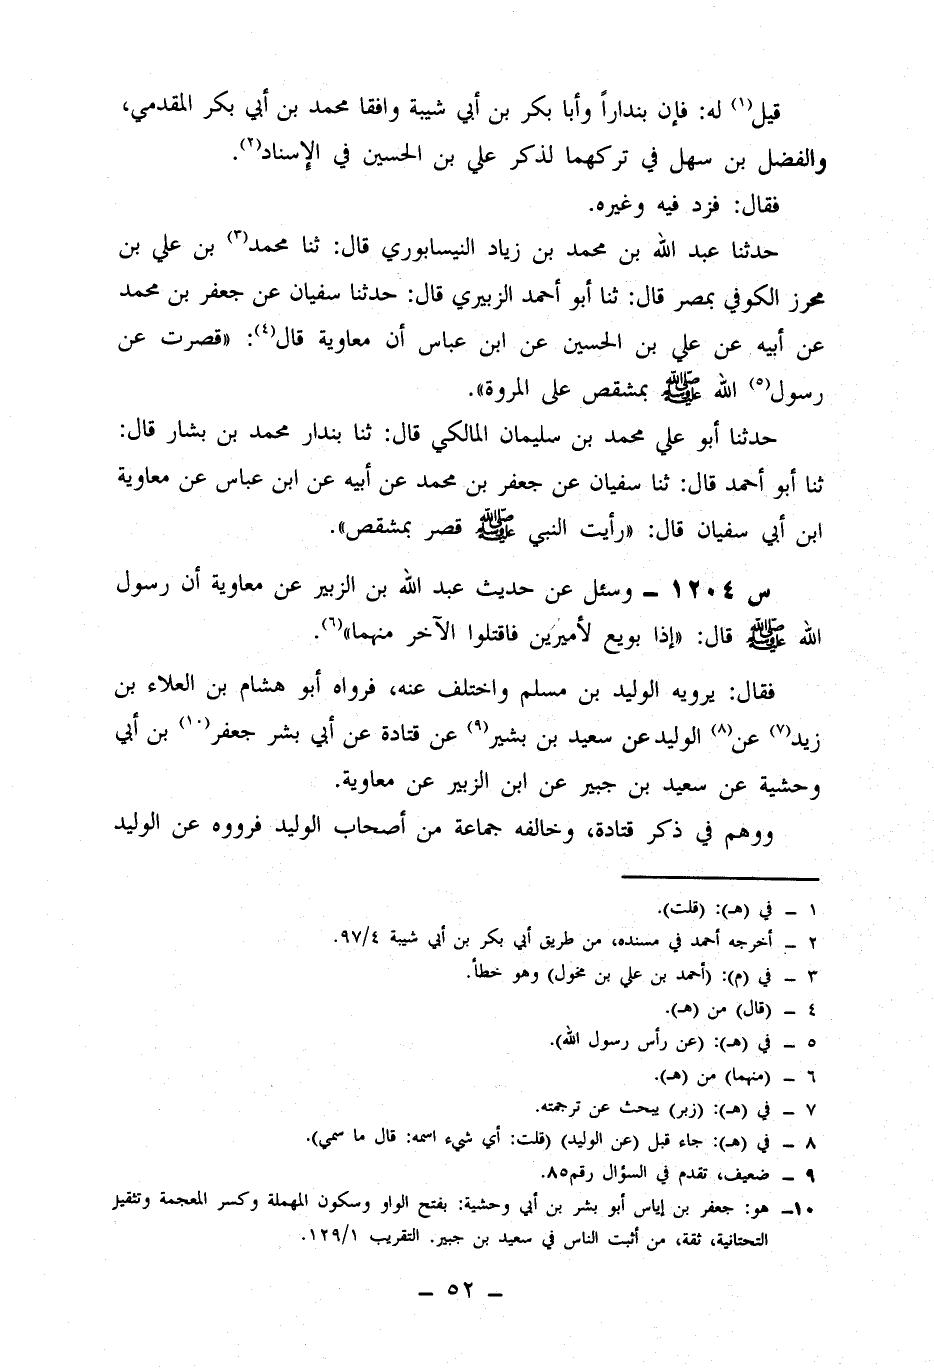 قيل(١) له: فإن بنداراً وأبا بكر بن أبي شيبة وافقا محمد بن أبي بكر المقدمي،
والفضل بن سهل في تركهما لذكر علي بن الحسين في الإسناد(٢).
فقال: فزد فيه وغيره.
حدثنا عبد الله بن محمد بن زياد النيسابوري قال: ثنا محمد(٣) بن علي بن
محرز الكوفي بمصر قال: ثنا أبو أحمد الزبيري قال: حدثنا سفيان عن جعفر بن محمد
عن أبيه عن علي بن الحسين عن ابن عباس أن معاوية قال(٤): «قصرت عن
رسول(٥) الله ﷺ بمشقص على المروة».
حدثنا أبو علي محمد بن سليمان المالكي قال: ثنا بندار محمد بن بشار قال:
ثنا أبو أحمد قال: ثنا سفيان عن جعفر بن محمد عن أبيه عن ابن عباس عن معاوية
ابن أبي سفيان قال: «رأيت النبي ﷺ قصر بمشقص».
س ١٢٠٤ – وسئل عن حديث عبد الله بن الزبير عن معاوية أن رسول
الله ﷺ قال: «إذا بويع لأميرَين فاقتلوا الآخر منهما»(٦).
فقال: يرويه الوليد بن مسلم واختلف عنه، فرواه أبو هشام بن العلاء بن
زيد(٧) عن(٨) الوليد عن سعيد بن بشير(٩) عن قتادة عن أبي بشر جعفر(١٠) بن أبي
وحشية عن سعيد بن جبير عن ابن الزبير عن معاوية.
ووهم في ذكر قتادة، وخالفه جماعة من أصحاب الوليد فرووه عن الوليد
١ – في (هـ): (قلت).
٢ – أخرجه أحمد في مسنده، من طريق أبي بكر بن أبي شيبة ٩٧/٤.
٣ – في (م): (أحمد بن علي بن مخول) وهو خطأ.
٤ – (قال) من (هـ).
٥ – في (هـ): (عن رأس رسول الله).
٦ – (منهما) من (هـ).
٧ – في (هـ): (زبر) يبحث عن ترجمته.
٨ – في (هـ): جاء قبل (عن الوليد) (قلت: أي شيء اسمه: قال ما سمي).
٩ – ضعيف، تقدم في السؤال رقم ٨٥.
١٠– هو: جعفر بن إياس أبو بشر بن أبي وحشية: بفتح الواو وسكون المهملة وكسر المعجمة وتثقيل
التحتانية، ثقة، من أثبت الناس في سعيد بن جبير. التقريب ١٢٩/١.
– ٥٢ –